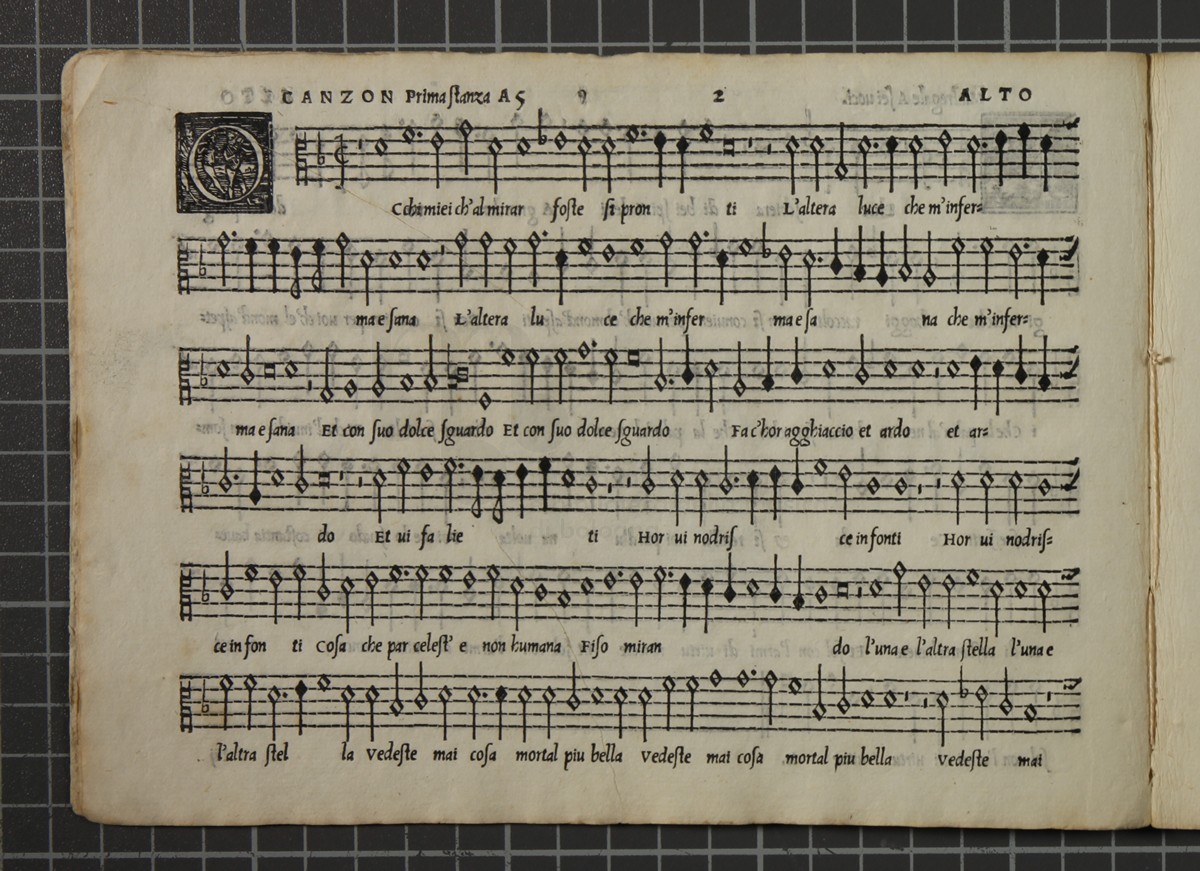 CANZON Prima ſtanza A 5 2 ALTO
O
Cchi miei ch'al mirar foſte ſi pron ti L'altera luce che m'infer=
ma e ſana L'altera lu ce che m'infer ma e ſa na che m'infer=
ma e ſana Et con ſuo dolce ſguardo Et con ſuo dolce ſguardo Fa c'hor agghiaccio et ardo et ar=
do Et ui fa lie ti Hor ui nodriſ ce in fonti Hor ui nodriſ=
ce in fon ti Coſa che par celeſt' e non humana Fiſo miran do l'una e l'altra ſtella l'una e
l'altra ſtel la Vedeſte mai coſa mortal piu bella Vedeſte mai coſa mortal piu bella Vedeſte mai